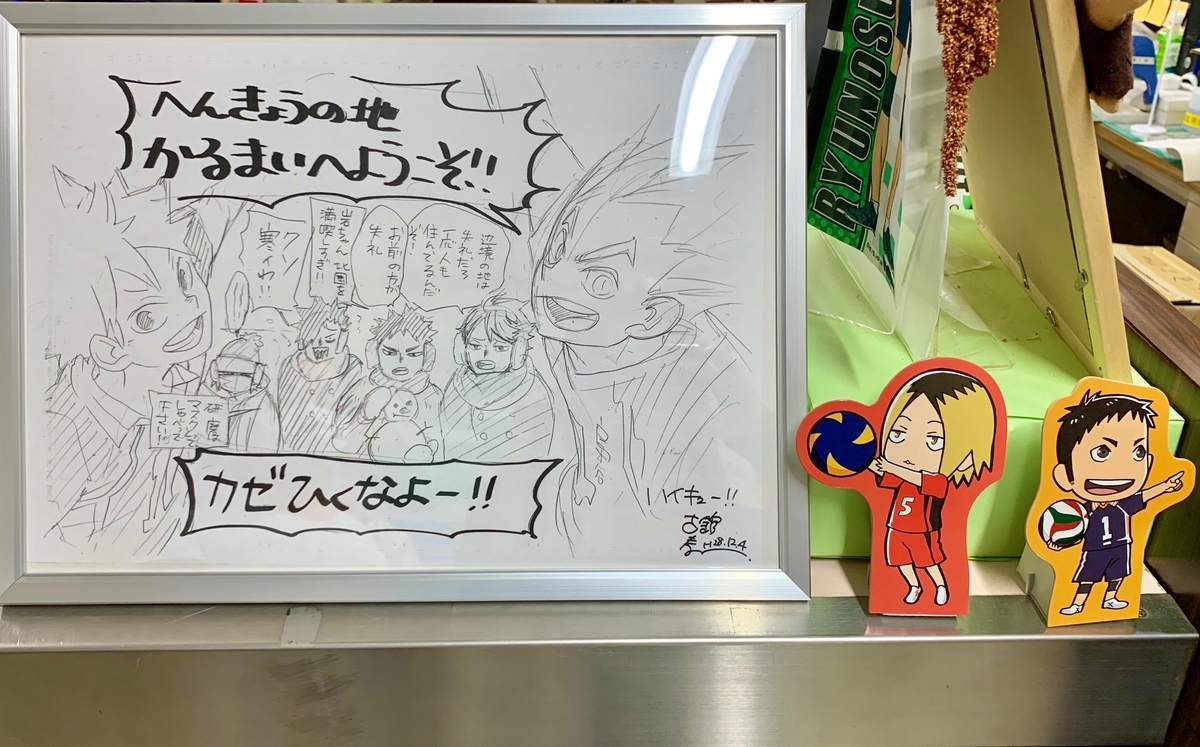 へんきょうの地
かるまいへようこそ!!
辺境の地は
失礼だろ
一応人も
住んでるんだ
ぞ!
お前の方が
失礼
岩ちゃん 北国を
満喫しすぎ!!
クソ
寒イわ!!
研磨は
マスクして
しゃべって
下さい!!
カゼひくなよー!!
ハイキュー!!
古舘
春 H28.12.4
RYUNOS
5
1